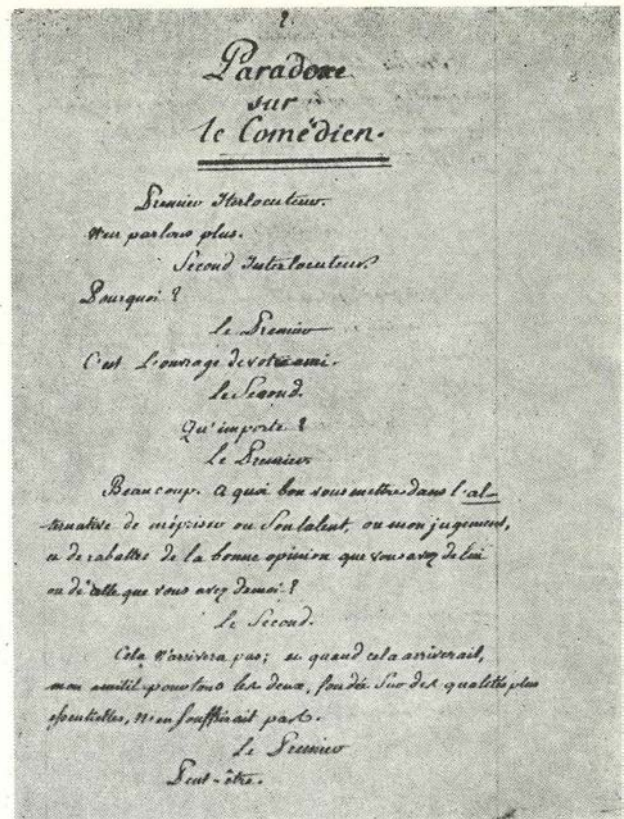 2.
Paradoxe
sur
le Comédien.
Premier Iterlocuteur.
N'en parlons plus.
Second Interlocuteur.
Pourquoi ?
le Premier
C'est L'ouvrage de votre ami.
Le Second.
Qu'importe ?
Le Premier.
Beaucoup. A quoi bon vous mettre dans l'al-
ternative de mépriser ou Son talent, ou mon jugement,
et de rabattre de la bonne opinion que vous avez de lui
ou de celle que vous avez de moi ?
Le Second.
Cela n'arrivera pas ; et quand cela arriverait,
mon amitié pour tous les deux, fondée Sur des qualités plus
essentielles, n'en Souffrirait pas.
Le Premier
Peut-être.